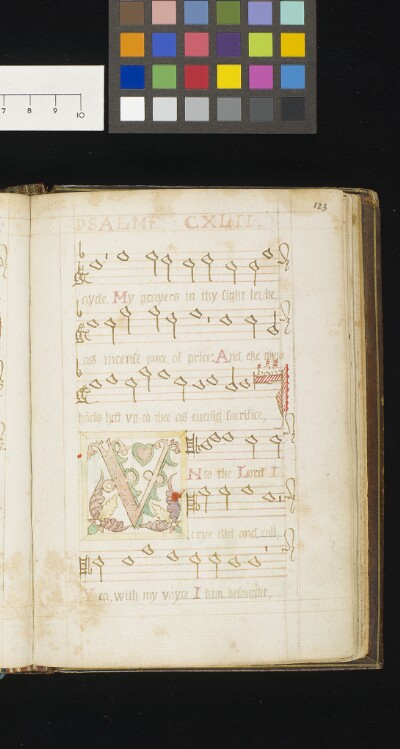 7 8 9 10
123
PSALME. CXLII.
ayde. My prayers in thy sight let be,
as incense pure of price: And eke myne
hāds lyft vp to thee as euenīg sacrifice,
VNto the Lord I
crye did and call,
Yea, with my voyce I him besought,